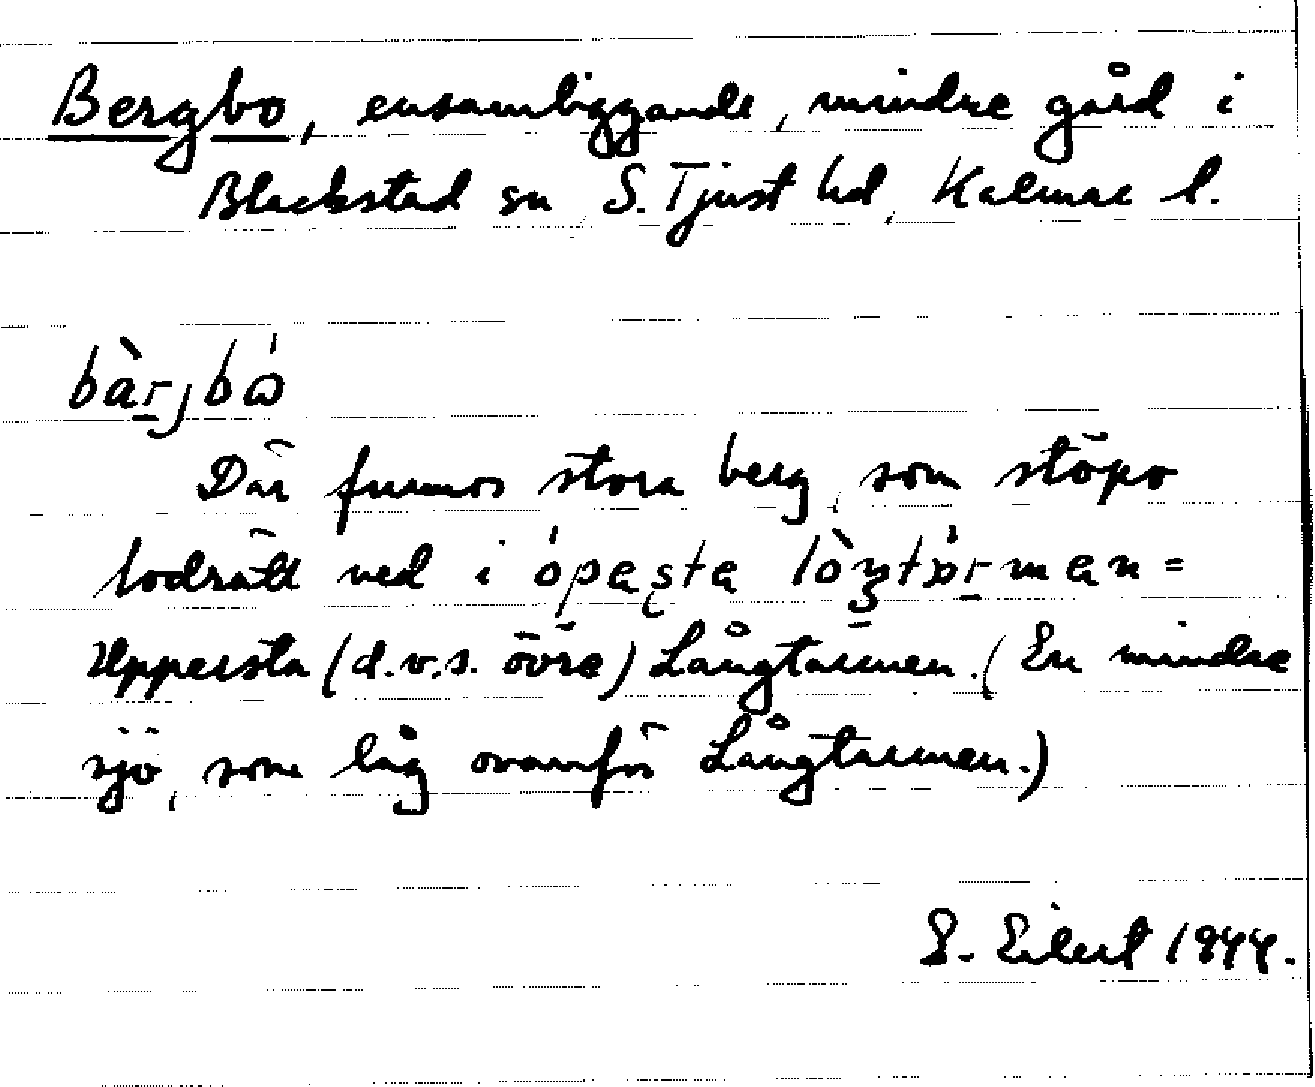 Bergbo, ensamliggande, mindre gård i
Blackstad sn S. Tjust hd, Kalmar l.
bàrjbó
Där funnos stora berg, som stöpo
lodrätt ned i
Uppersta (d.v.s. övre) Långtarmen. (En mindre
sjö, som låg ovanför Långtarmen.)
Eilert 1944.